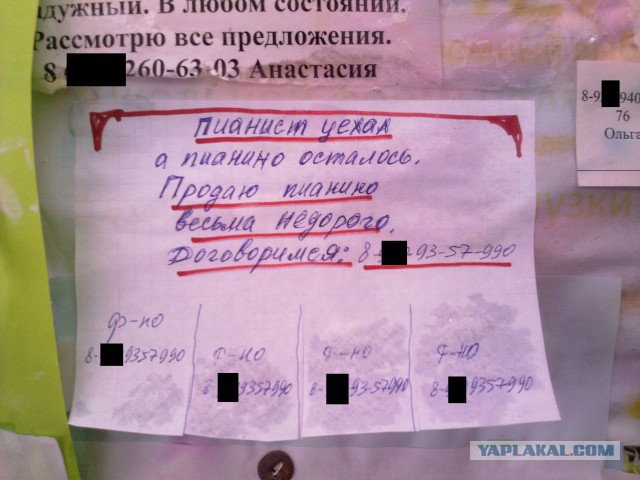 дужный. В любом состоянии.
Рассмотрю все предложения.
8 260-63-03 Анастасия
8-9 940
76
Ольга
Пианист уехал
а пианино осталось.
Продаю пианино
весьма недорого.
Договоримся: 8- 93-57-990
ф-но
8- 9357990
ф-но
8- 9357990
ф-но
8- 93-57990
ф-но
8- 9357990
YAPLAKAL.COM